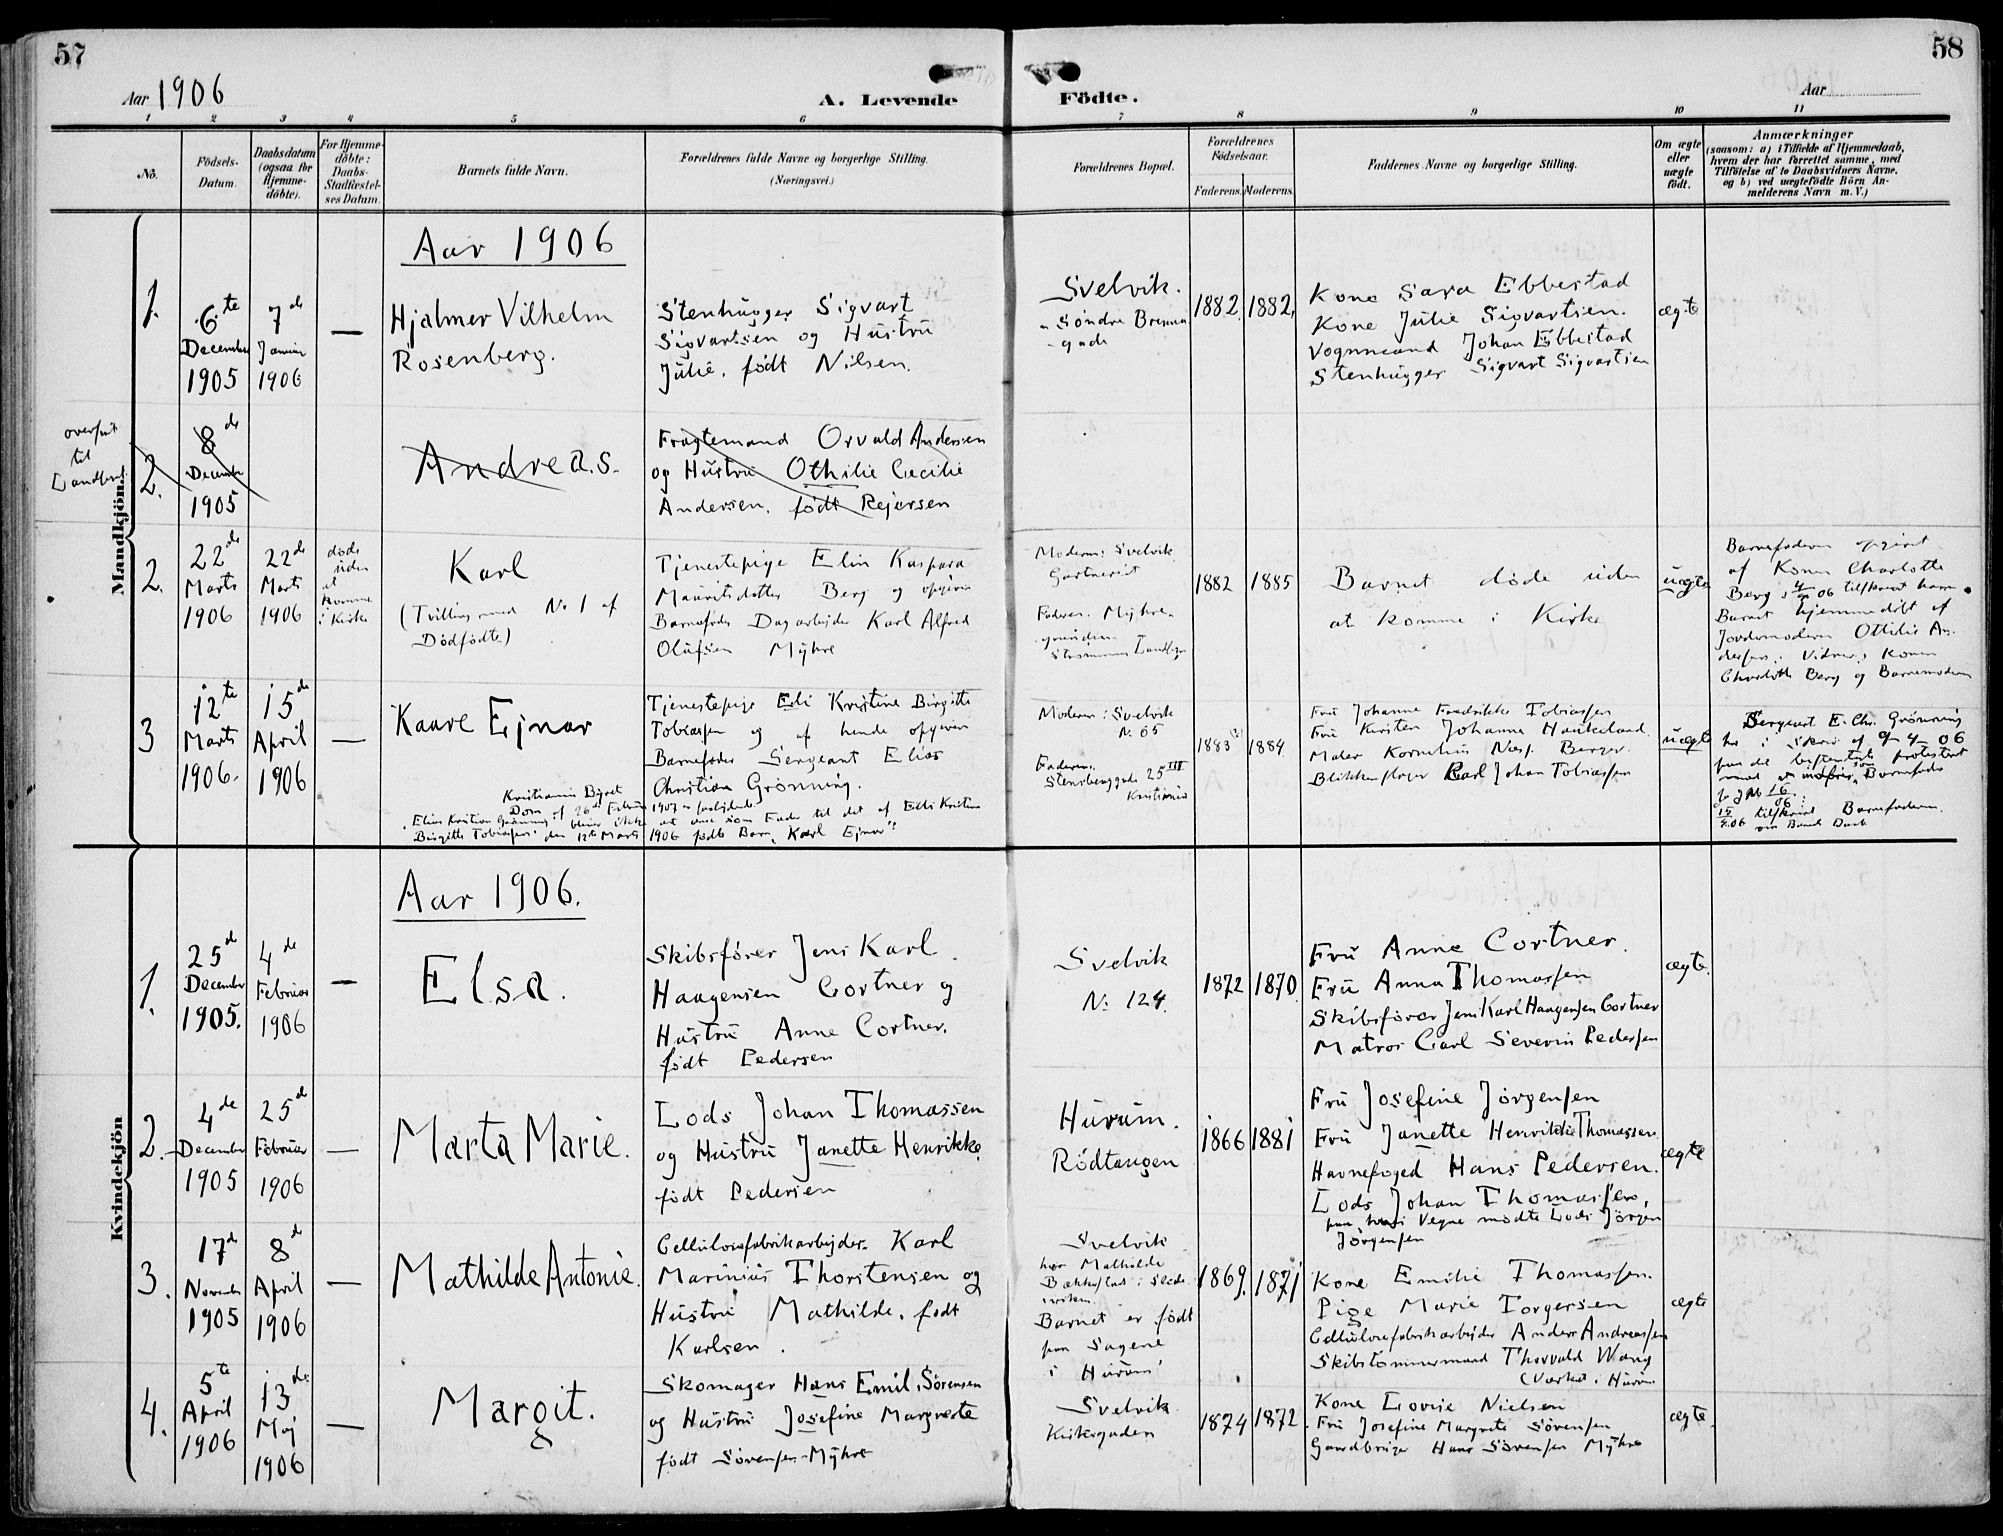 57
58
Aar 1906
A. Levende
Födte.
Aar
1
2
3
4
5
6
7
8
9
10
11
No.
Födsels-
Datum.
Daabsdatum
(ogsaa for
Hjemme-
döbte).
For Hjemme-
döbte:
Daabs-
Stadfæstel-
ses Datum.
Barnets fulde Navn.
Forældrenes fulde Navne og borgerlige Stilling.
(Næringsvei.)
Forældrenes Bopæl.
Forældrenes
Födselsaar.
Faderens.
Moderens.
Faddernes Navne og borgerlige Stilling.
Om ægte
eller
uægte
födt.
Anmærkninger
(saasom: a) i Tilfælde af Hjemmedaab,
hvem der har forrettet samme, med
Tilföielse af to Daabsvidners Navne.
og b) ved uægtefödte Börn An-
melderens Navn m. V.)
Mandkjön.
Aar 1906
1.
6te
December
1905
7de
Januar
1906
—
Hjalmer Vilhelm
Rosenberg.
Stenhugger Sigvart
Sigvartsen og Hustru
Julie, født Nilsen.
Svelvik.
Søndre Brenna
gade
1882.
1882.
Kone Sara Ebbestad
Kone Julie Sigvartsen.
Vognmand Johan Ebbestad
Stenhugger Sigvart Sigvartsen
ægte
overført
til
Landsogn
2.
8de
Decembr
1905
Andreas.
Fragtemand Osvald Andersen
og Hustru Othilie Cecilie
Andersen, født Rejersen
2.
22de
Marts
1906
22de
Marts
1906
døde
uden
at
komme
i Kirke
Karl
(Tvilling med No 1 af
Dødfødte)
Tjenestepige Elin Kaspara
Mauritsdatter Berg og opgiven
Barnefader Dagarbejder Karl Alfred
Olufsen Myhre
Moderen: Svelvik
Gartneriet
Faderen. Myhre-
Strømmen Landsogn
1882
1885
Barnet døde uden
at komme i Kirke
uægte
Barnefaderen opgivet
af Konen Charlotte
Berg, 06 tilskrevet ham.
Barnet hjemmedøbt af
Jordemoderen Othilie An-
dersen. Vidner: Konen
Charlotte Berg og Barnemoderen
3
12te
Marts
1906.
15de
April
1906
—
Kaare Ejnar
Tjenestepige Elli Kristine Birgitte
Tobiassen og af hende opgiven
Barnefader Sergeant Elias
Christian Grønning.
Kristiania Byret
Dom af 26de Februar 1907
Elias Kristian Grønning bliver ikke at anse som Fader til det af Elli Kristine
Birgitte Tobiassen den 12te Marts 1906 fødte Barn, Karl Ejnar"
Moderen: Svelvik
No 65
Faderen.
Stensberggade 25 III
Kristiania
1883
1884
Fru Johanne Fredrikke Tobiassen
Fru Kirsten Johanne Haukeland
Maler Kornelius Berger.
Blikkenslager Carl Johan Tobiassen
uægte
Sergeant E. Chr. Grønning
har i Skriv af 9-4-06
paa det bestemteste protesteret
mod at som Barnefader
tilskrevet Barnefaderen.
om Barnets Daab
Kvindekjön
Aar 1906.
1.
25de
December
1905.
4de
Februar
1906
—
Elsa.
Skibsfører Jens Karl
Haagensen Cortner og
Hustru Anne Cortner.
født Pedersen
Svelvik
No 124.
1872
1870
Fru Anne Cortner.
Fru Anna Thomassen
Skibsfører Jens Karl Haagensen Cortner
Matros Carl Severin Pedersen
ægte.
2.
4de
December
1905
25de
Februar
1906
—
Marta Marie.
Lods Johan Thomassen
og Hustru Janette Henrikke
født Pedersen
Hurum.
Rødtangen
1866
1881
Fru Josefine Jørgensen
Fru Janette Henrikke Thomassen.
Havnefoged Hans Pedersen.
Lods Johan Thomassen,
paa hvis Vegne mødte Lods Jørgen
Jørgensen
ægte
3.
17de
November
1905
8de
April
1906
—
Mathilde Antonie.
Cellulosefabrikarbejder Karl
Marinius Thorstensen og
Hustru Mathilde, født
Karlsen.
Svelvik
hos Mathilde
Barnet er født
paa Sagene
i Hurum
1869.
1871
Kone Emilie Thomassen.
Pige Marie Torgersen
Cellulosefabrikarbejder Anders Andreassen
Skibstømmermand Thorvald Wang
(Værket i Hurum
ægte
4.
5te
April
1906
13de
Maj
1906
—
Margit.
Skomager Hans Emil Sørensen
og Hustru Josefine Margrete
født Sørensen-Myhre
Svelvik.
Kirkegaden
1874
1872
Kone Lovise Nielsen
Fru Josefine Margrete Sørensen
Gaardbruger Hans Sørensen Myhre
ægte.